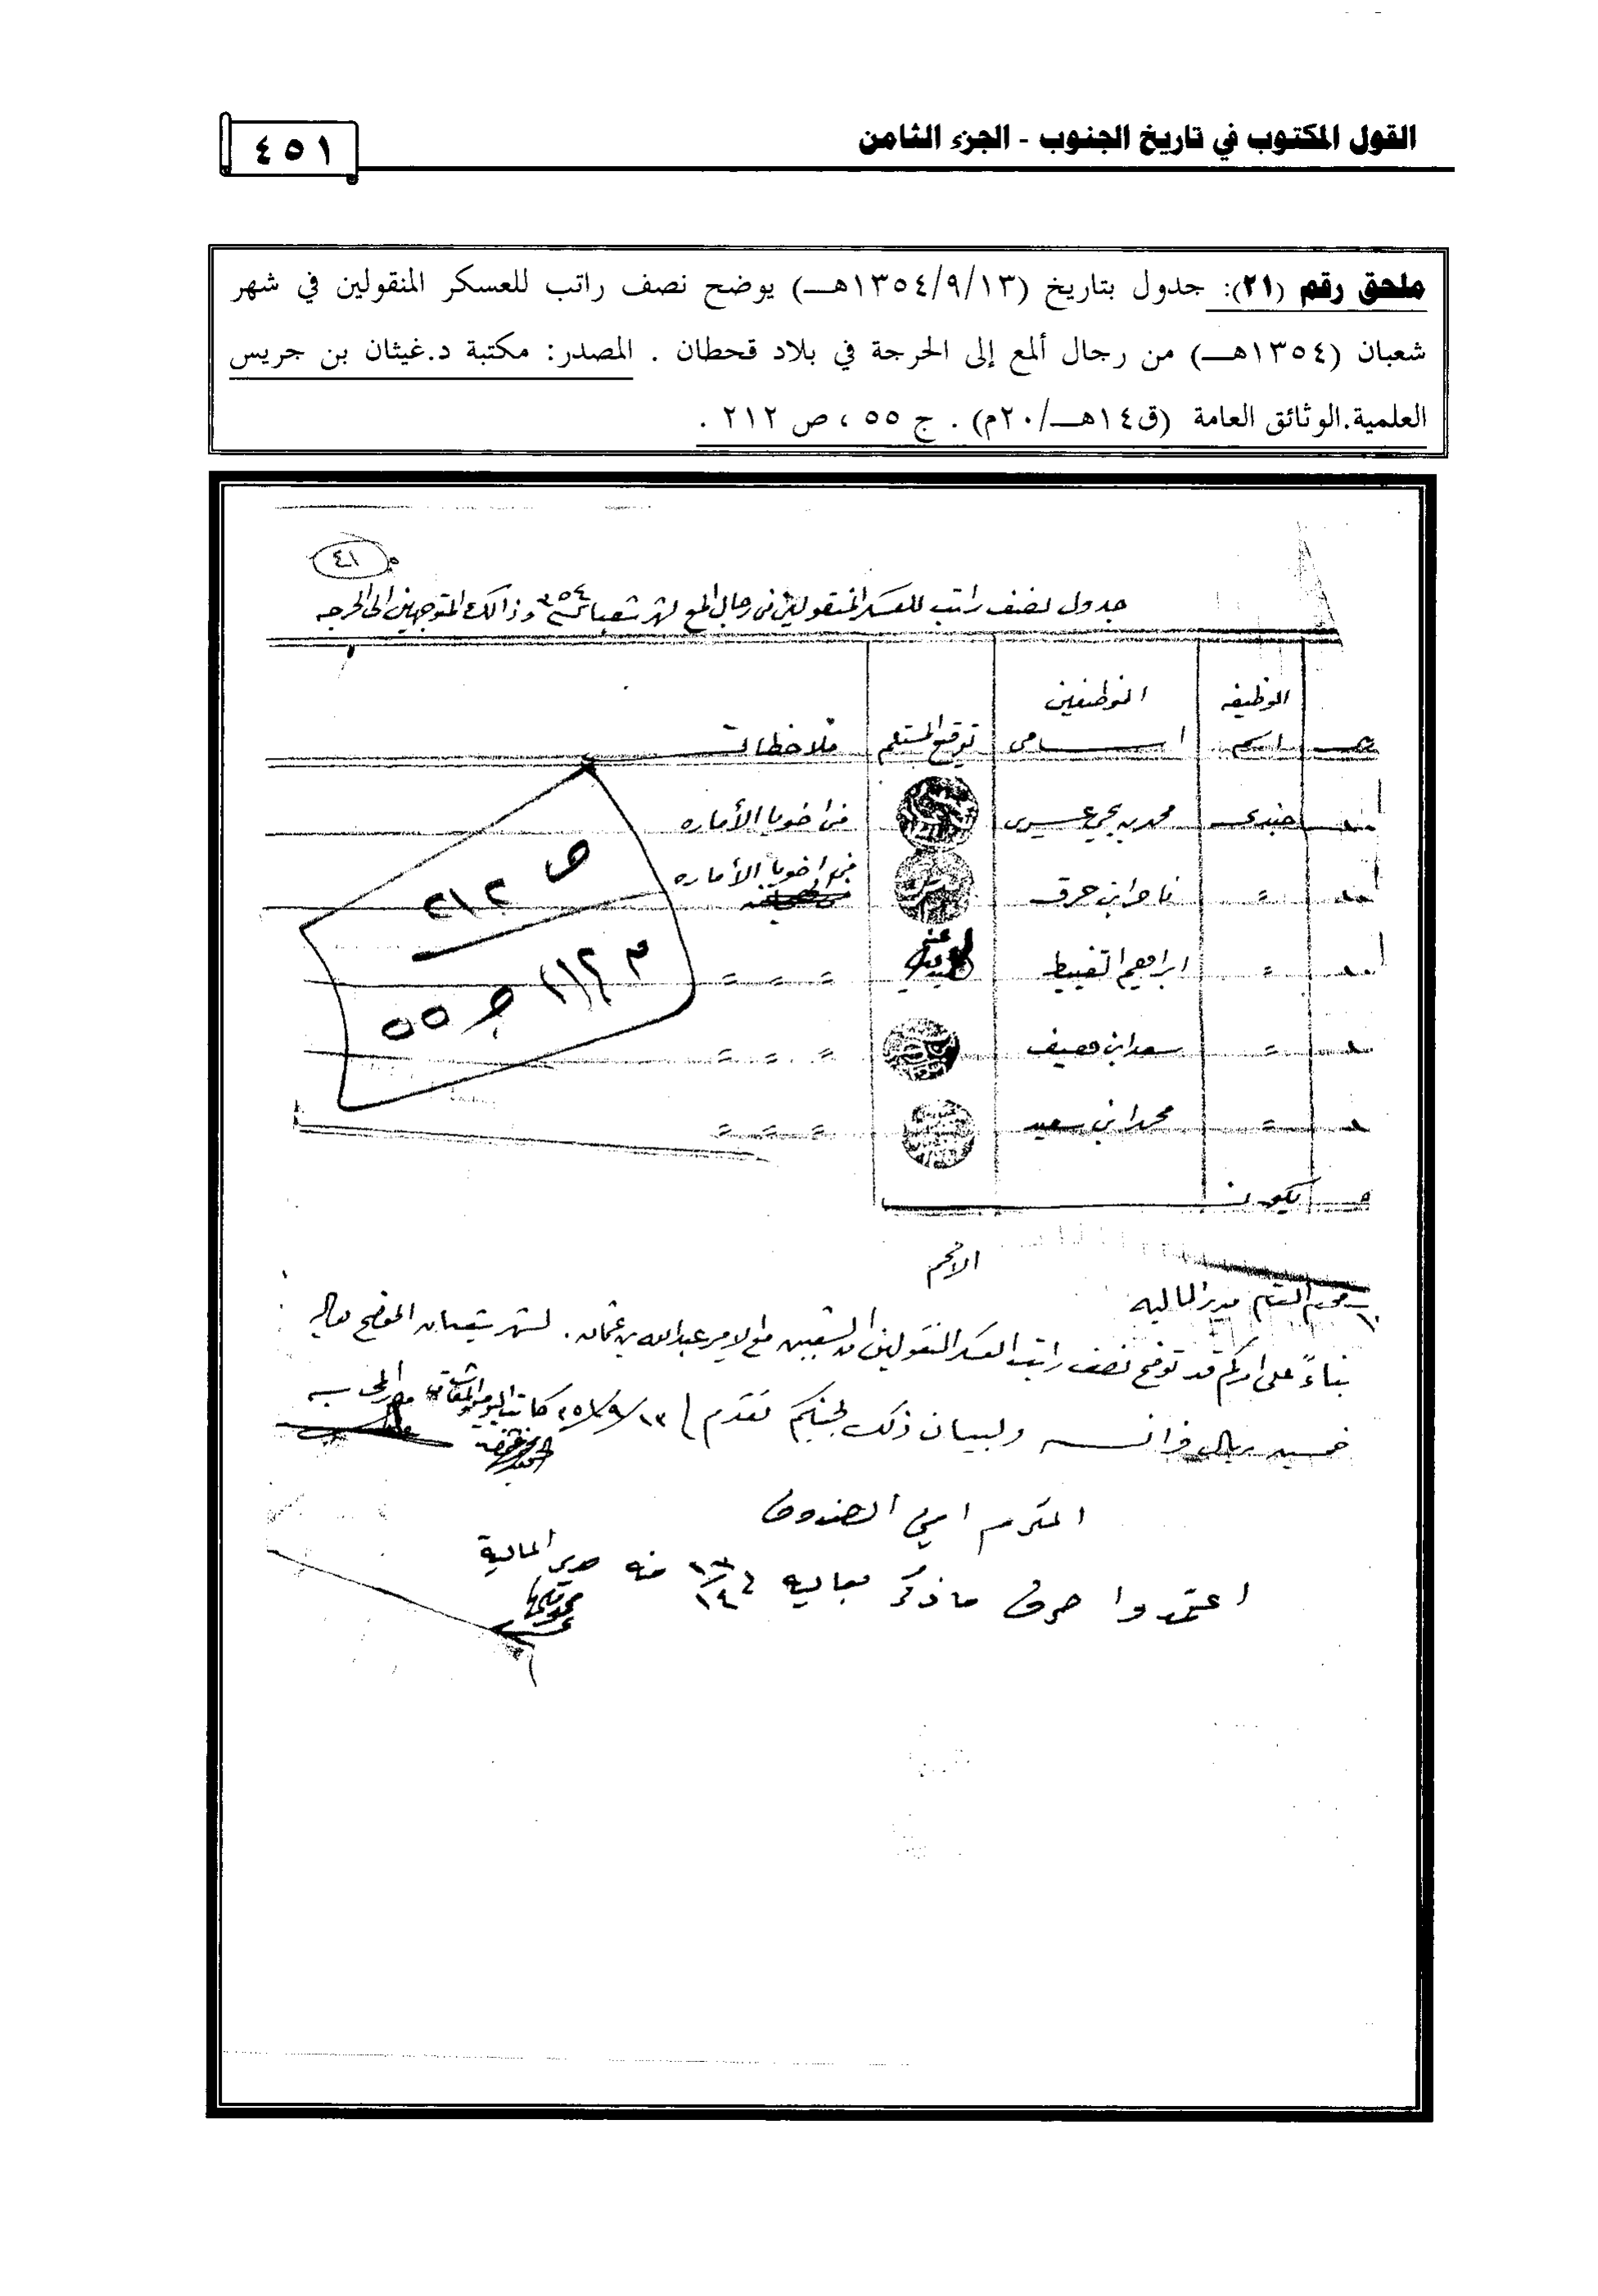 القول المكتوب في تاريخ الجنوب - الجزء الثامن
٤٥١
ملحق رقم (٢١): جدول بتاريخ (١٣٥٤/٩/١٣هـ) يوضح نصف راتب للعسكر المنقولين في شهر
شعبان (١٣٥٤هـ) من رجال ألمع إلى الحرجة في بلاد قحطان . المصدر: مكتبة د.غيثان بن جريس
العلمية.الوثائق العامة (ق١٤هـ/٢٠م) . ج ٥٥ ، ص ٢١٢ .
٤١
جدول نصف راتب للعسكر المنقولين من رجال المع لشهر شعبان ٣٥٤ وذالك المتوجهين الى الحرجه
الوظيفه الموظفين
اسم اسامى توقيع المستلم ملاحظات
جندى محمد بن يحي عسيرى من اخويا الأماره
= ناصر ابن من اخويا الأماره
= ابراهيم = = =
= سعد ابن = = =
= محمد ابن سعيد = = =
يكون
ص ٢١٢
ج ٥٥
الافخم
مدير المالية
بناءً على امركم قد توضح نصف راتب العسكر المنقولين من الشعبين مع الامير عبدالله بن عثمان . لشهر شعبان الموضح بعاليه
خمسين ريال فرانسه ولبيان ذلك لجنبكم تقدم
المكرم امين الصندوق
اعتمدوا صرف ما ذكر بعاليه منه مدير المالية